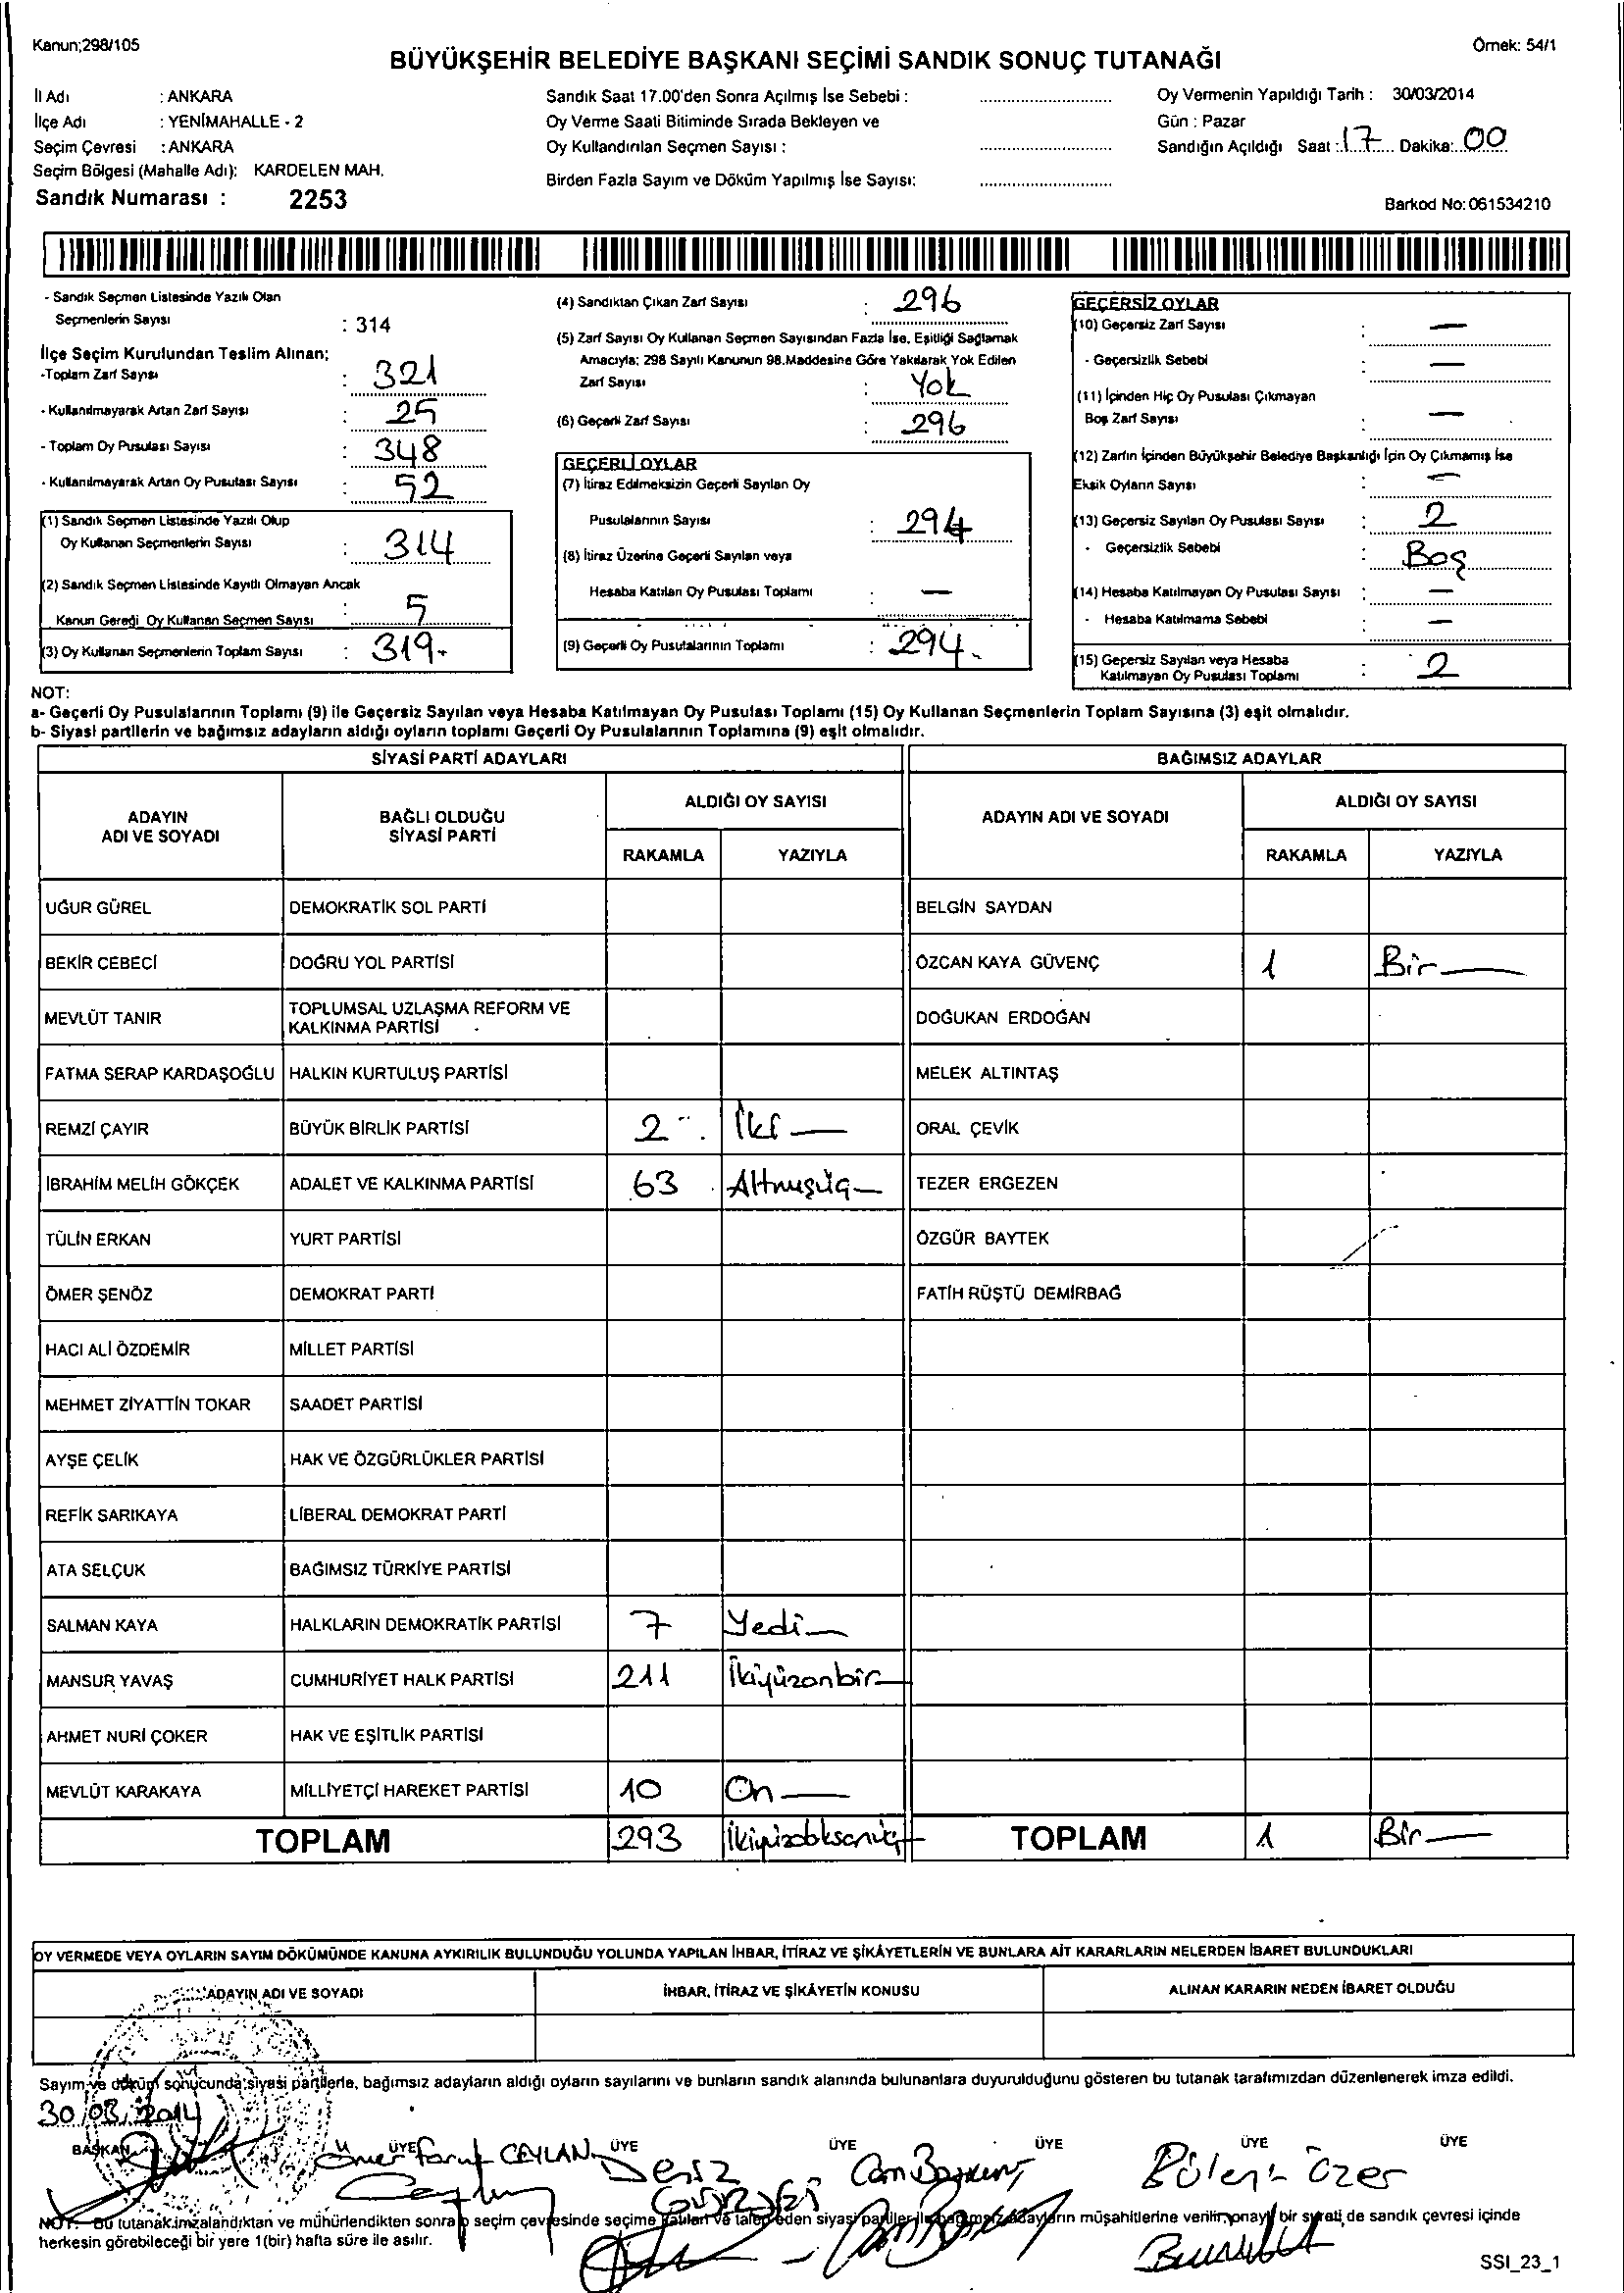 Kanun;298/105
Örnek: 54/1
BÜYÜKŞEHİR BELEDİYE BAŞKANI SEÇİMİ SANDIK SONUÇ TUTANAĞI
İl Adı : ANKARA
İlçe Adı : YENİMAHALLE - 2
Seçim Çevresi : ANKARA
Seçim Bölgesi (Mahalle Adı): KARDELEN MAH.
Sandık Numarası : 2253
Sandık Saat 17.00'den Sonra Açılmış İse Sebebi :
Oy Verme Saati Bitiminde Sırada Bekleyen ve
Oy Kullandırılan Seçmen Sayısı :
Birden Fazla Sayım ve Döküm Yapılmış İse Sayısı:
Oy Vermenin Yapıldığı Tarih : 30/03/2014
Gün : Pazar
Sandığın Açıldığı Saat : 17 Dakika: 00
Barkod No: 061534210
- Sandık Seçmen Listesinde Yazılı Olan
Seçmenlerin Sayısı : 314
İlçe Seçim Kurulundan Teslim Alınan;
-Toplam Zarf Sayısı : 321
- Kullanılmayarak Artan Zarf Sayısı : 25
- Toplam Oy Pusulası Sayısı : 348
- Kullanılmayarak Artan Oy Pusulası Sayısı : 52
(1) Sandık Seçmen Listesinde Yazılı Olup
Oy Kullanan Seçmenlerin Sayısı : 314
(2) Sandık Seçmen Listesinde Kayıtlı Olmayan Ancak
Kanun Gereği Oy Kullanan Seçmen Sayısı : 5
(3) Oy Kullanan Seçmenlerin Toplam Sayısı : 319.
(4) Sandıktan Çıkan Zarf Sayısı : 296
(5) Zarf Sayısı Oy Kullanan Seçmen Sayısından Fazla İse, Eşitliği Sağlamak
Amacıyla; 298 Sayılı Kanunun 98.Maddesine Göre Yakılarak Yok Edilen
Zarf Sayısı : Yok
(6) Geçerli Zarf Sayısı : 296
GEÇERLİ OYLAR
(7) İtiraz Edilmeksizin Geçerli Sayılan Oy
Pusulalarının Sayısı : 294
(8) İtiraz Üzerine Geçerli Sayılan veya
Hesaba Katılan Oy Pusulası Toplamı : —
(9) Geçerli Oy Pusulalarının Toplamı : 294.
GEÇERSİZ OYLAR
(10) Geçersiz Zarf Sayısı : —
- Geçersizlik Sebebi : —
(11) İçinden Hiç Oy Pusulası Çıkmayan
Boş Zarf Sayısı : —
(12) Zarfın İçinden Büyükşehir Belediye Başkanlığı İçin Oy Çıkmamış İse
Eksik Oyların Sayısı : —
(13) Geçersiz Sayılan Oy Pusulası Sayısı : 2
- Geçersizlik Sebebi : Boş
(14) Hesaba Katılmayan Oy Pusulası Sayısı : —
- Hesaba Katılmama Sebebi : —
(15) Geçersiz Sayılan veya Hesaba
Katılmayan Oy Pusulası Toplamı : 2
NOT:
a- Geçerli Oy Pusulalarının Toplamı (9) ile Geçersiz Sayılan veya Hesaba Katılmayan Oy Pusulası Toplamı (15) Oy Kullanan Seçmenlerin Toplam Sayısına (3) eşit olmalıdır.
b- Siyasi partilerin ve bağımsız adayların aldığı oyların toplamı Geçerli Oy Pusulalarının Toplamına (9) eşit olmalıdır.
SİYASİ PARTİ ADAYLARI
ADAYIN ADI VE SOYADI
BAĞLI OLDUĞU SİYASİ PARTİ
ALDIĞI OY SAYISI
RAKAMLA YAZIYLA
UĞUR GÜREL DEMOKRATİK SOL PARTİ
BEKİR CEBECİ DOĞRU YOL PARTİSİ
MEVLÜT TANIR TOPLUMSAL UZLAŞMA REFORM VE KALKINMA PARTİSİ
FATMA SERAP KARDAŞOĞLU HALKIN KURTULUŞ PARTİSİ
REMZİ ÇAYIR BÜYÜK BİRLİK PARTİSİ 2 İki —
İBRAHİM MELİH GÖKÇEK ADALET VE KALKINMA PARTİSİ 63 Altmışüç —
TÜLİN ERKAN YURT PARTİSİ
ÖMER ŞENÖZ DEMOKRAT PARTİ
HACI ALİ ÖZDEMİR MİLLET PARTİSİ
MEHMET ZİYATTİN TOKAR SAADET PARTİSİ
AYŞE ÇELİK HAK VE ÖZGÜRLÜKLER PARTİSİ
REFİK SARIKAYA LİBERAL DEMOKRAT PARTİ
ATA SELÇUK BAĞIMSIZ TÜRKİYE PARTİSİ
SALMAN KAYA HALKLARIN DEMOKRATİK PARTİSİ 7 Yedi —
MANSUR YAVAŞ CUMHURİYET HALK PARTİSİ 211 İkiyüzonbir —
AHMET NURİ ÇOKER HAK VE EŞİTLİK PARTİSİ
MEVLÜT KARAKAYA MİLLİYETÇİ HAREKET PARTİSİ 10 On —
TOPLAM 293 İkiyüzdoksanüç
BAĞIMSIZ ADAYLAR
ADAYIN ADI VE SOYADI
ALDIĞI OY SAYISI
RAKAMLA YAZIYLA
BELGİN SAYDAN
ÖZCAN KAYA GÜVENÇ 1 Bir —
DOĞUKAN ERDOĞAN
MELEK ALTINTAŞ
ORAL ÇEVİK
TEZER ERGEZEN
ÖZGÜR BAYTEK
FATİH RÜŞTÜ DEMİRBAĞ
TOPLAM 1 Bir —
OY VERMEDE VEYA OYLARIN SAYIM DÖKÜMÜNDE KANUNA AYKIRILIK BULUNDUĞU YOLUNDA YAPILAN İHBAR, İTİRAZ VE ŞİKÂYETLERİN VE BUNLARA AİT KARARLARIN NELERDEN İBARET BULUNDUKLARI
ADAYIN ADI VE SOYADI İHBAR, İTİRAZ VE ŞİKÂYETİN KONUSU ALINAN KARARIN NEDEN İBARET OLDUĞU
Sayım ve döküm sonucunda siyasi partilerle, bağımsız adayların aldığı oyların sayılarını ve bunların sandık alanında bulunanlara duyurulduğunu gösteren bu tutanak tarafımızdan düzenlenerek imza edildi.
30/03/2014
BAŞKAN ÜYE ÜYE ÜYE ÜYE ÜYE ÜYE
Ömer Faruk CEYLAN Deniz Can Bülent Özer
NOT: Bu tutanak imzalandıktan ve mühürlendikten sonra o seçim çevresinde seçime katılan ve talep eden siyasi partiler ile bağımsız adayların müşahitlerine verilir, onaylı bir sureti de sandık çevresi içinde
herkesin görebileceği bir yere 1(bir) hafta süre ile asılır.
SSI_23_1